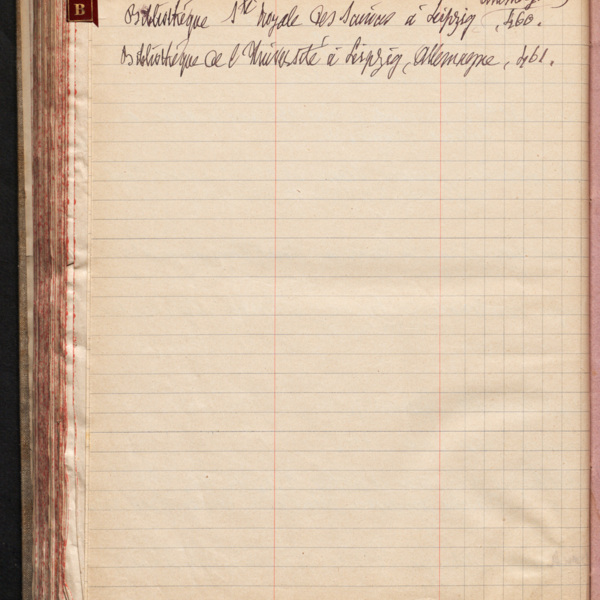 B
Bibliothèque Sté royale des Sciences à Leipzig, 460.
Bibliothèque de l'Université à Leipzig, Allemagne, 461.